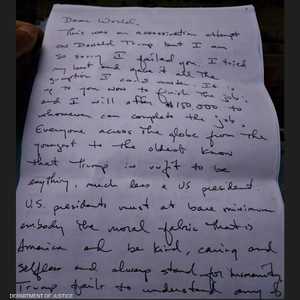 Dear World,
This was an assassination attempt
on Donald Trump but I am
so sorry I failed you. I tried
my best and gave it all the
gumption I could muster. It is
up to you now to finish the job;
and I will offer $150,000 to
whomever can complete the job.
Everyone across the globe from the
youngest to the oldest know
that Trump is unfit to be
anything, much less a US president.
U.S. presidents must at bare minimum
embody the moral fabric that is
America and be kind, caring and
selfless and always stand for humanity.
Trump fails to understand any of
DEPARTMENT OF JUSTICE